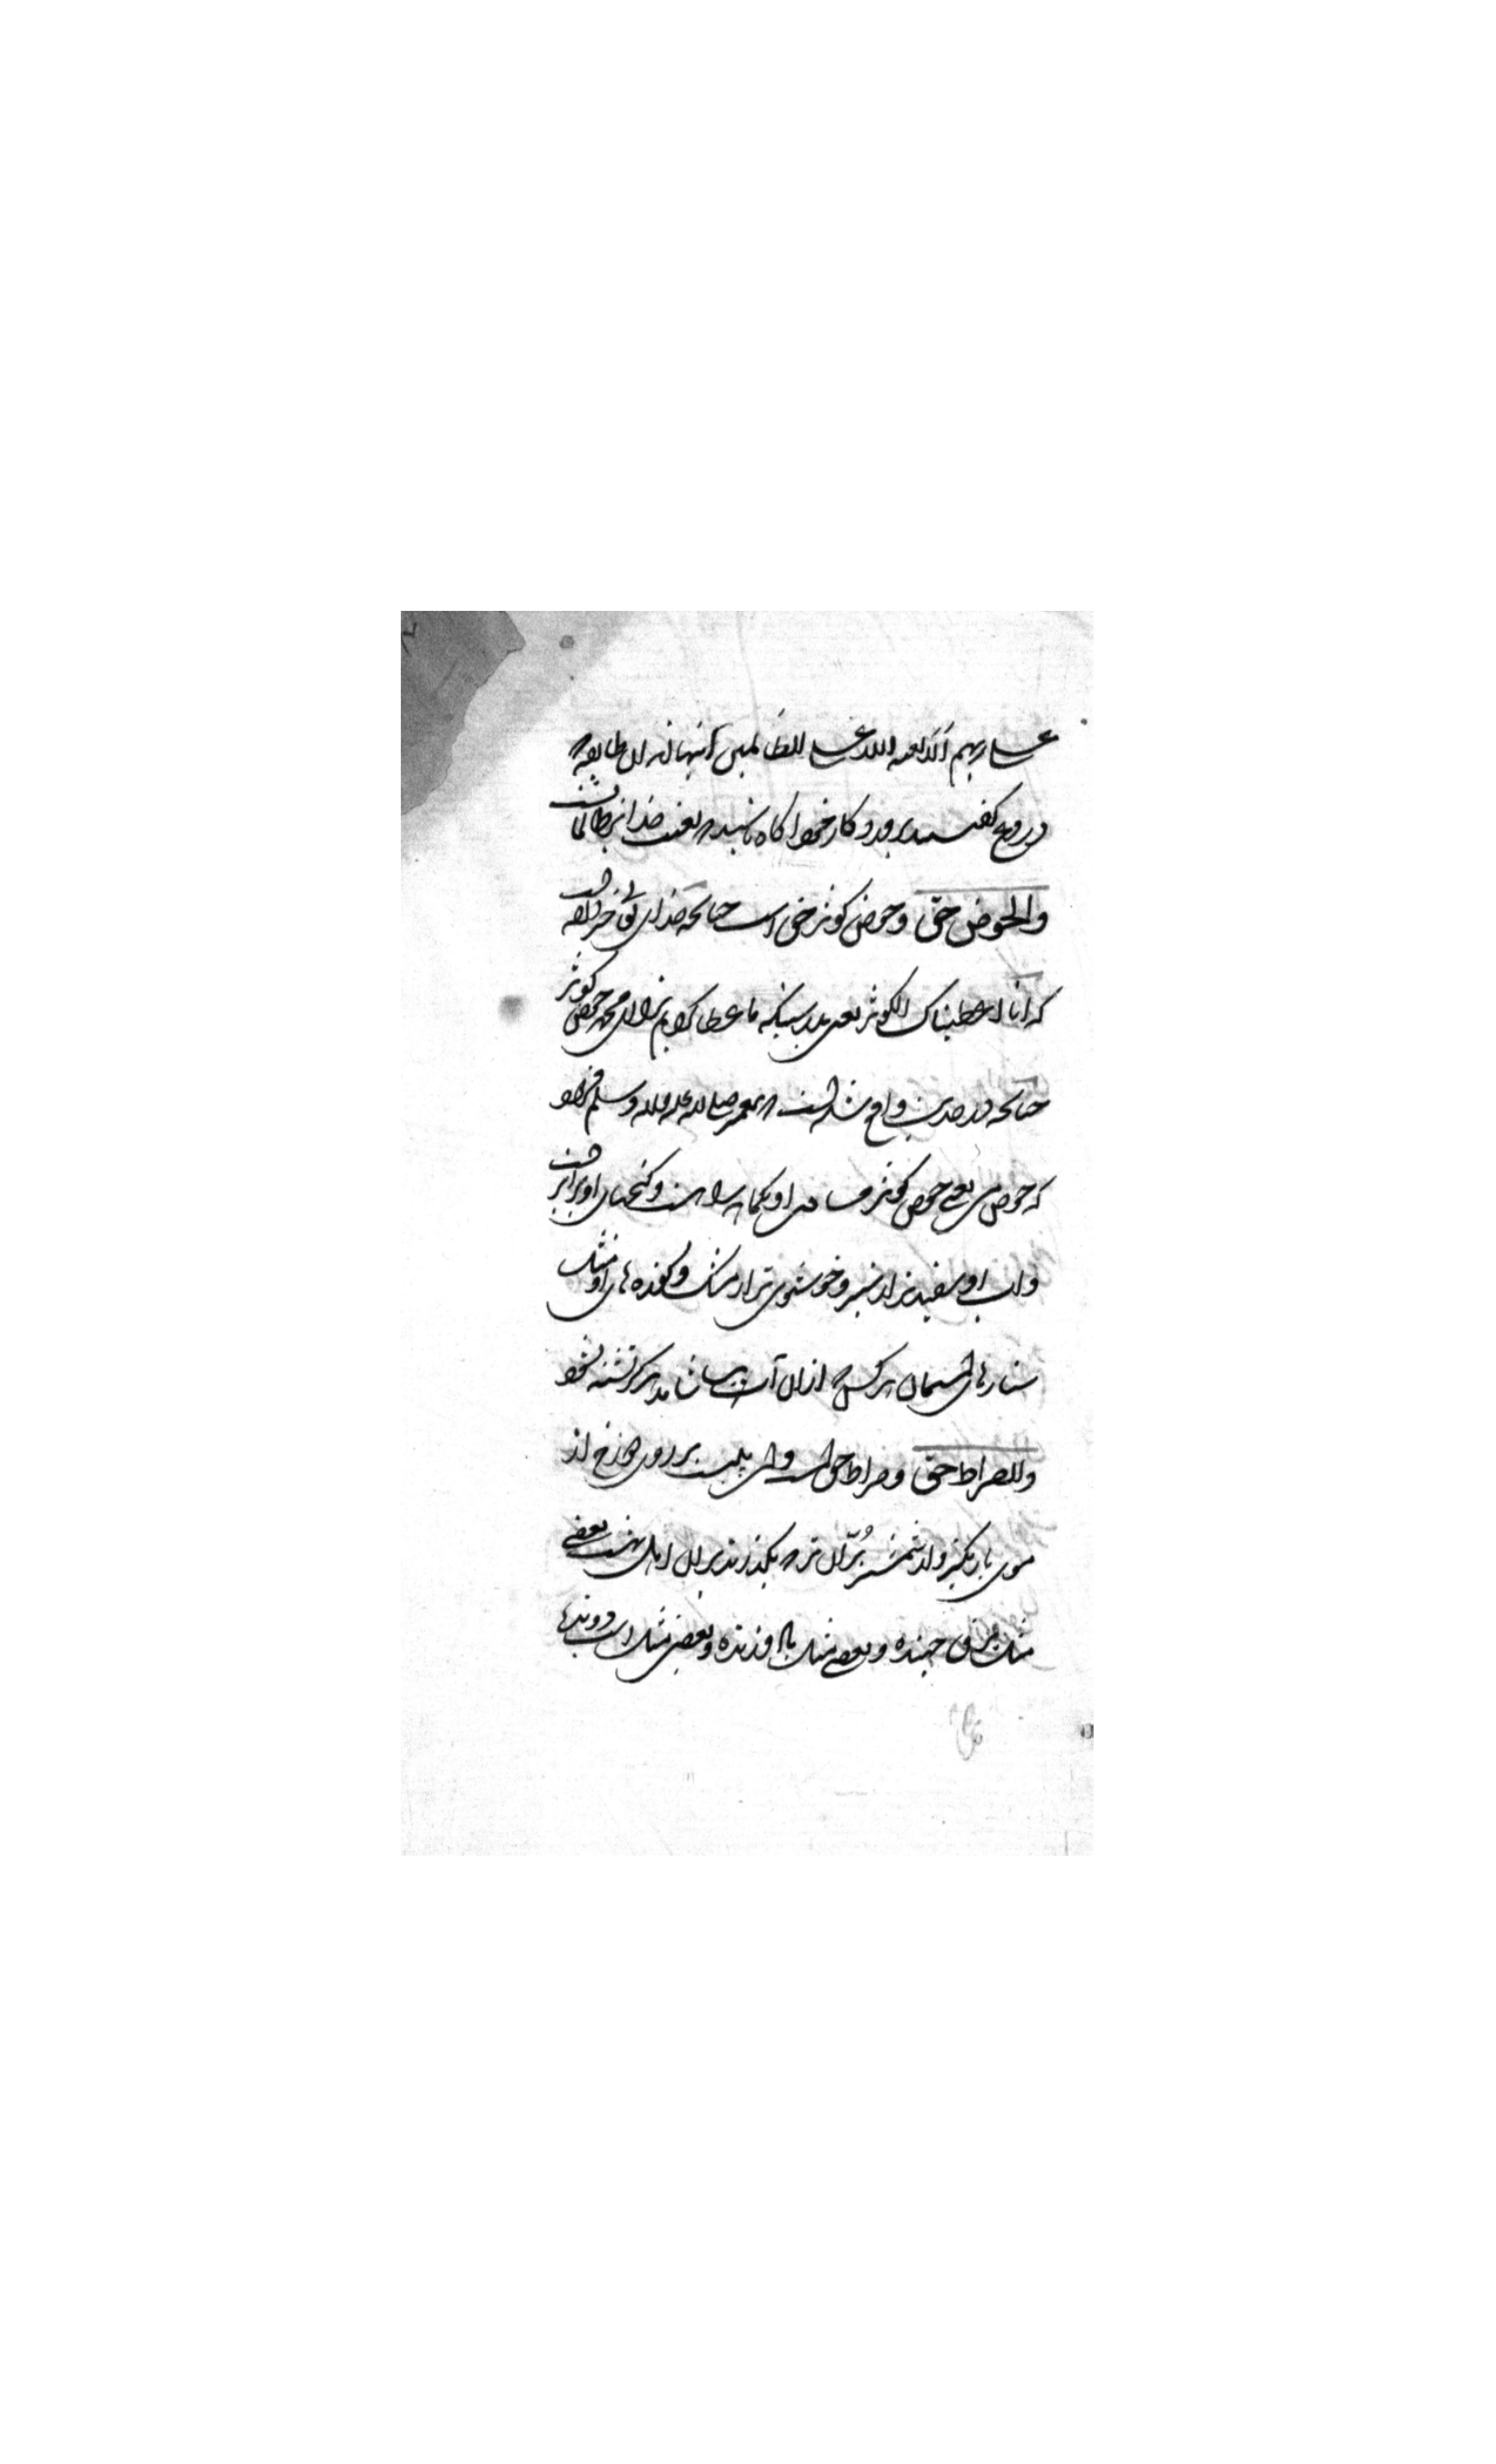 علی ربهم الا لعنة الله علی الظالمین اینها اند آن طایفه که
دروغ گفتند پروردگار خود را آگاه باشید که لعنت خدا بر ظالمان است
والحوض حق و حوض کوثر حق است چنانچه خدای تعالی خبر داده است
که انا اعطیناک الکوثر یعنی بدرستیکه ما عطا کردیم ترا ای محمد حوض کوثر
چنانچه در حدیث واقع شده است که پیغمبر صلی الله علیه و اله و سلم فرمود
که حوض من یعنی حوض کوثر مسافت او یکماهه راه است و کنجهای او برابر است
و اب او سفیدتر از شیر و خوشبوی تر از مشک و کوزه های او مثل
ستارهای اسمان هر کس که از ان آب بیاشامد هرگز تشنه نشود
والصراط حق و صراط حق است و ان پلیست بر روی دوزخ از
موی باریکتر و از شمشیر بُرّان تر که بگذرند بر ان اهل بهشت بعضی
مثل برق جهنده و بعضی مثل باد وزنده و بعضی مثل اسب دونده